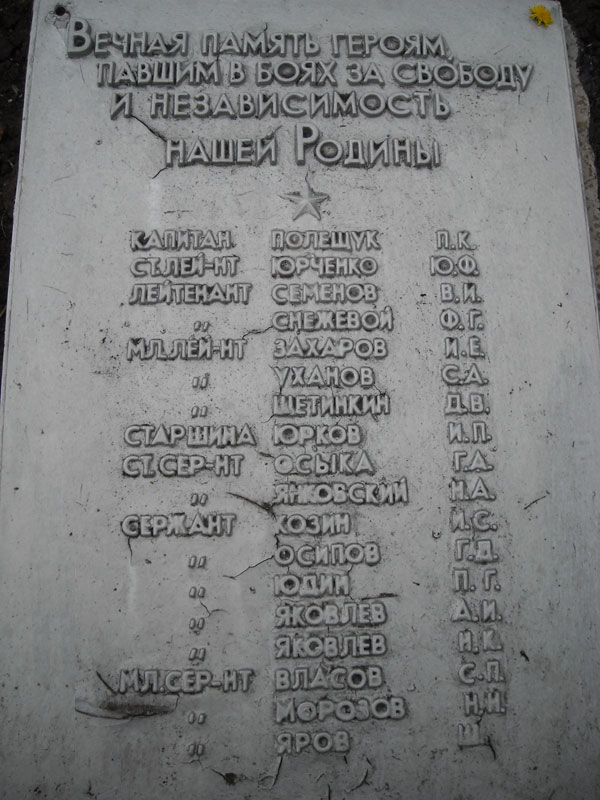 Вечная память героям,
павшим в боях за свободу
и независимость
нашей Родины
КАПИТАН ПОЛЕЩУК П.К.
СТ.ЛЕЙ-НТ ЮРЧЕНКО Ю.Ф.
ЛЕЙТЕНАНТ СЕМЕНОВ В.И.
„ СНЕЖЕВОЙ Ф.Г.
МЛ.ЛЕЙ-НТ ЗАХАРОВ И.Е.
„ УХАНОВ С.А.
„ ЩЕТИНКИН Д.В.
СТАРШИНА ЮРКОВ И.П.
СТ.СЕР-НТ ОСЫКА Г.А.
„ ЯНКОВСКИЙ Н.А.
СЕРЖАНТ КОЗИН И.С.
„ ОСИПОВ Г.Д.
„ ЮДИН П.Г.
„ ЯКОВЛЕВ А.И.
„ ЯКОВЛЕВ Н.К.
МЛ.СЕР-НТ ВЛАСОВ С.П.
„ МОРОЗОВ Н.И.
„ ЯРОВ Ш